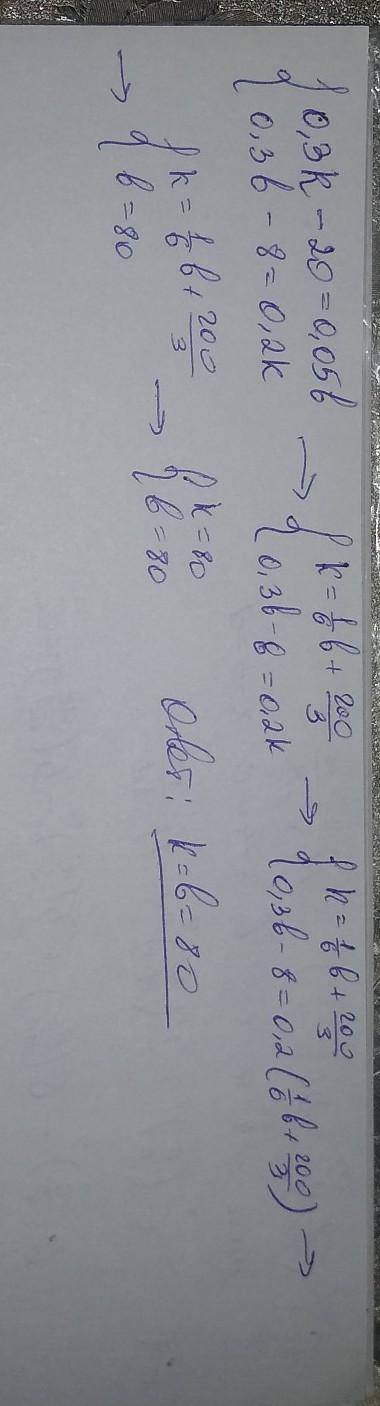 { 0,3k - 20 = 0,05b
{ 0,3b - 8 = 0,2k
→ { k = 1/6 b + 200/3
{ 0,3b - 8 = 0,2k
→ { k = 1/6 b + 200/3
{ 0,3b - 8 = 0,2(1/6 b + 200/3) →
→ { k = 1/6 b + 200/3
{ b = 80
→ { k = 80
{ b = 80
Ответ: k = b = 80